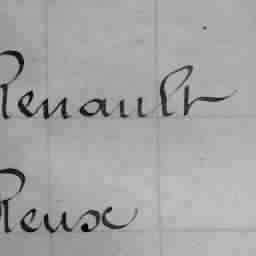 Renault
Reux